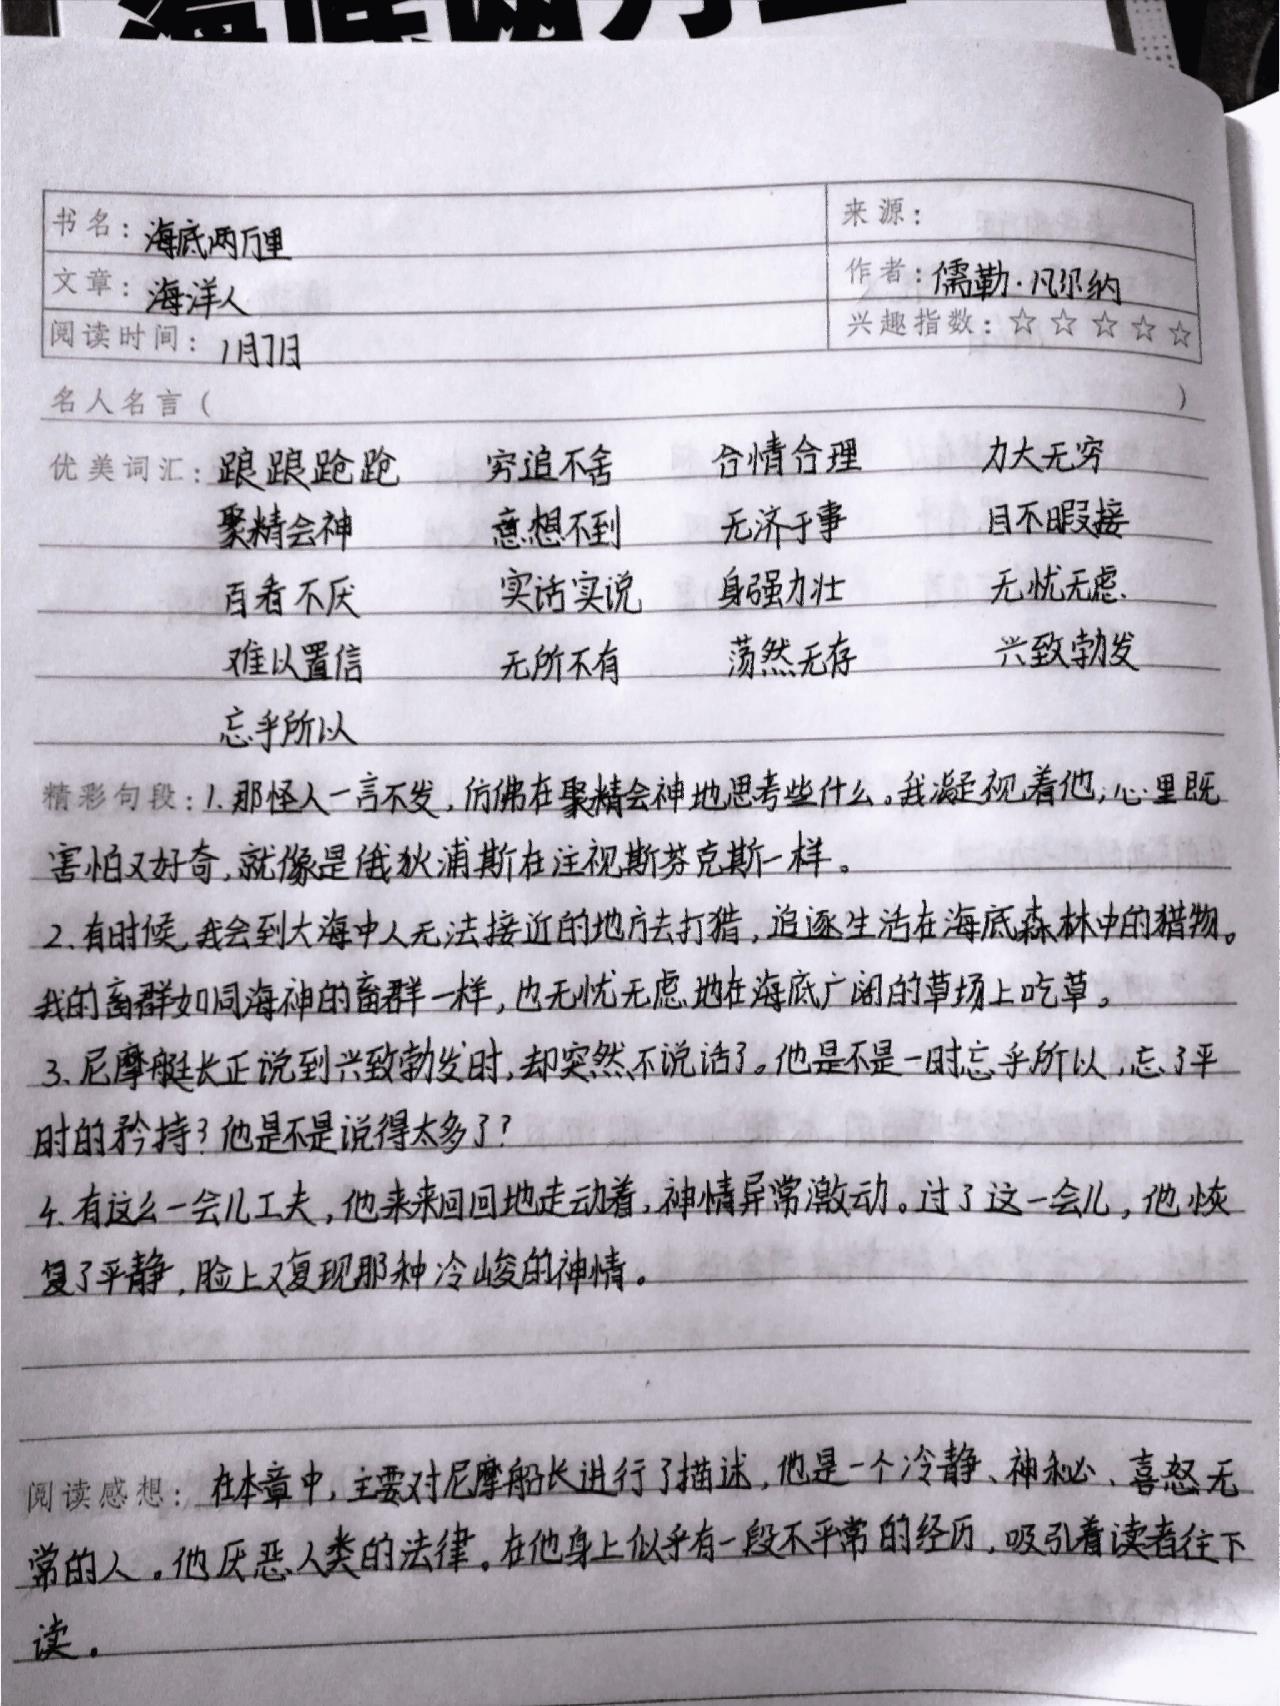 海底两万里
书名：海底两万里 来源：
文章：海洋人 作者：儒勒·凡尔纳
阅读时间：1月7日 兴趣指数：☆☆☆☆☆
名人名言（ ）
优美词汇：踉踉跄跄 穷追不舍 合情合理 力大无穷
聚精会神 意想不到 无济于事 目不暇接
百看不厌 实话实说 身强力壮 无忧无虑
难以置信 无所不有 荡然无存 兴致勃发
忘乎所以
精彩句段：1.那怪人一言不发，仿佛在聚精会神地思考些什么。我凝视着他，心里既
害怕又好奇，就像是俄狄浦斯在注视斯芬克斯一样。
2、有时候，我会到大海中人无法接近的地方去打猎，追逐生活在海底森林中的猎物。
我的畜群如同海神的畜群一样，也无忧无虑地在海底广阔的草场上吃草。
3、尼摩艇长正说到兴致勃发时，却突然不说话了。他是不是一时忘乎所以，忘了平
时的矜持？他是不是说得太多了？
4、有这么一会儿工夫，他来来回回地走动着，神情异常激动。过了这一会儿，他恢
复了平静，脸上又复现那种冷峻的神情。
阅读感想：在本章中，主要对尼摩船长进行了描述，他是一个冷静、神秘、喜怒无
常的人。他厌恶人类的法律。在他身上似乎有一段不平常的经历，吸引着读者往下
读。